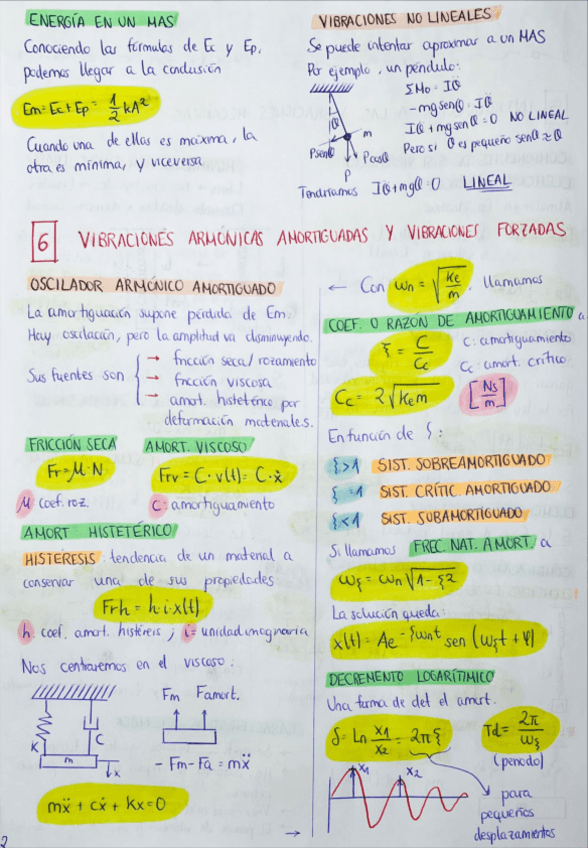 ENERGÍA EN UN MAS
Conociendo las fórmulas de Ec y Ep,
podemos llegar a la conclusión
Em = Ec + Ep = 1/2 kA²
Cuando una de ellas es máxima, la
otra es mínima, y viceversa
VIBRACIONES NO LINEALES
Se puede intentar aproximar a un MAS
Por ejemplo, un péndulo:
ΣMo = Iθ̈
-mg senθ = Iθ̈
Iθ̈ + mg senθ = 0 NO LINEAL
Pero si θ es pequeño senθ ≃ θ
θ
m
Psenθ
Pcosθ
P
Tendríamos Iθ̈ + mgθ = 0 LINEAL
6 VIBRACIONES ARMÓNICAS AMORTIGUADAS Y VIBRACIONES FORZADAS
OSCILADOR ARMÓNICO AMORTIGUADO
La amortiguación supone pérdida de Em.
Hay oscilación, pero la amplitud va disminuyendo.
Sus fuentes son { → fricción seca/rozamiento
→ fricción viscosa
→ amort. histetérico por
deformación materiales.
FRICCIÓN SECA
Fr = μ·N
μ coef. roz.
AMORT. VISCOSO
Frv = C·v(t) = C·ẋ
C = amortiguamiento
AMORT HISTETÉRICO
HISTÉRESIS: tendencia de un material a
conservar una de sus propiedades
Frh = h·i·x(t)
h: coef. amort. histéreis ; i = unidad imaginaria
Nos centraremos en el viscoso:
K
C
m
x
Fm Famort.
-Fm-Fa = mẍ
mẍ + cẋ + kx = 0
→
2
← Con ωn = √(ke/m), llamamos
COEF. O RAZÓN DE AMORTIGUAMIENTO a
ξ = C/Cc
C: amortiguamiento
Cc: amort. crítico
Cc = 2√(ke m)
[Ns/m]
En función de ξ:
ξ>1 SIST. SOBREAMORTIGUADO
ξ=1 SIST. CRÍTIC. AMORTIGUADO
ξ<1 SIST. SUBAMORTIGUADO
Si llamamos FREC. NAT. AMORT. a
ωξ = ωn √(1-ξ2)
La solución queda:
x(t) = Ae^(-ξωnt) sen (ωξt + φ)
DECREMENTO LOGARÍTMICO
Una forma de det el amort.
δ = Ln x1/x2 = 2πξ
Td = 2π/ωξ
(periodo)
x1
x2
para
pequeños
desplazamientos